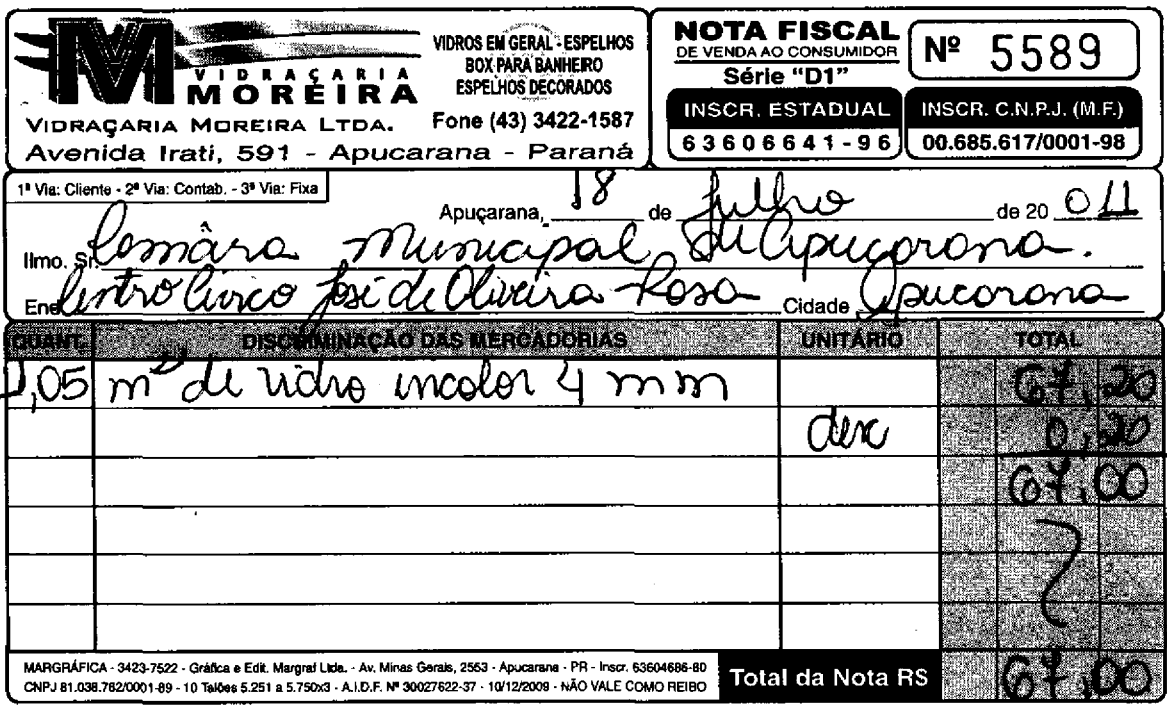 VIDRAÇARIA
MOREIRA
VIDRAÇARIA MOREIRA LTDA.
Avenida Irati, 591 - Apucarana - Paraná
VIDROS EM GERAL - ESPELHOS
BOX PARA BANHEIRO
ESPELHOS DECORADOS
Fone (43) 3422-1587
NOTA FISCAL
DE VENDA AO CONSUMIDOR
Série "D1"
Nº 5589
INSCR. ESTADUAL
63606641-96
INSCR. C.N.P.J. (M.F.)
00.685.617/0001-98
1ª Via: Cliente - 2ª Via: Contab. - 3ª Via: Fixa
Apuçarana, 18 de julho de 20 011
Ilmo. Sr. Câmara Municipal de Apucarana.
End Centro Cívico José de Oliveira Rosa Cidade Apucarana
QUANT. DISCRIMINAÇÃO DAS MERCADORIAS UNITÁRIO TOTAL
,05 m² de vidro incolor 4 mm 67,20
desc 0,20
67,00
MARGRÁFICA - 3423-7522 - Gráfica e Edit. Margraf Ltda. - Av. Minas Gerais, 2553 - Apucarana - PR - Inscr. 63604686-80
CNPJ 81.038.762/0001-89 - 10 Talões 5.251 a 5.750x3 - A.I.D.F. Nº 30027622-37 - 10/12/2009 - NÃO VALE COMO REIBO
Total da Nota RS 67,00